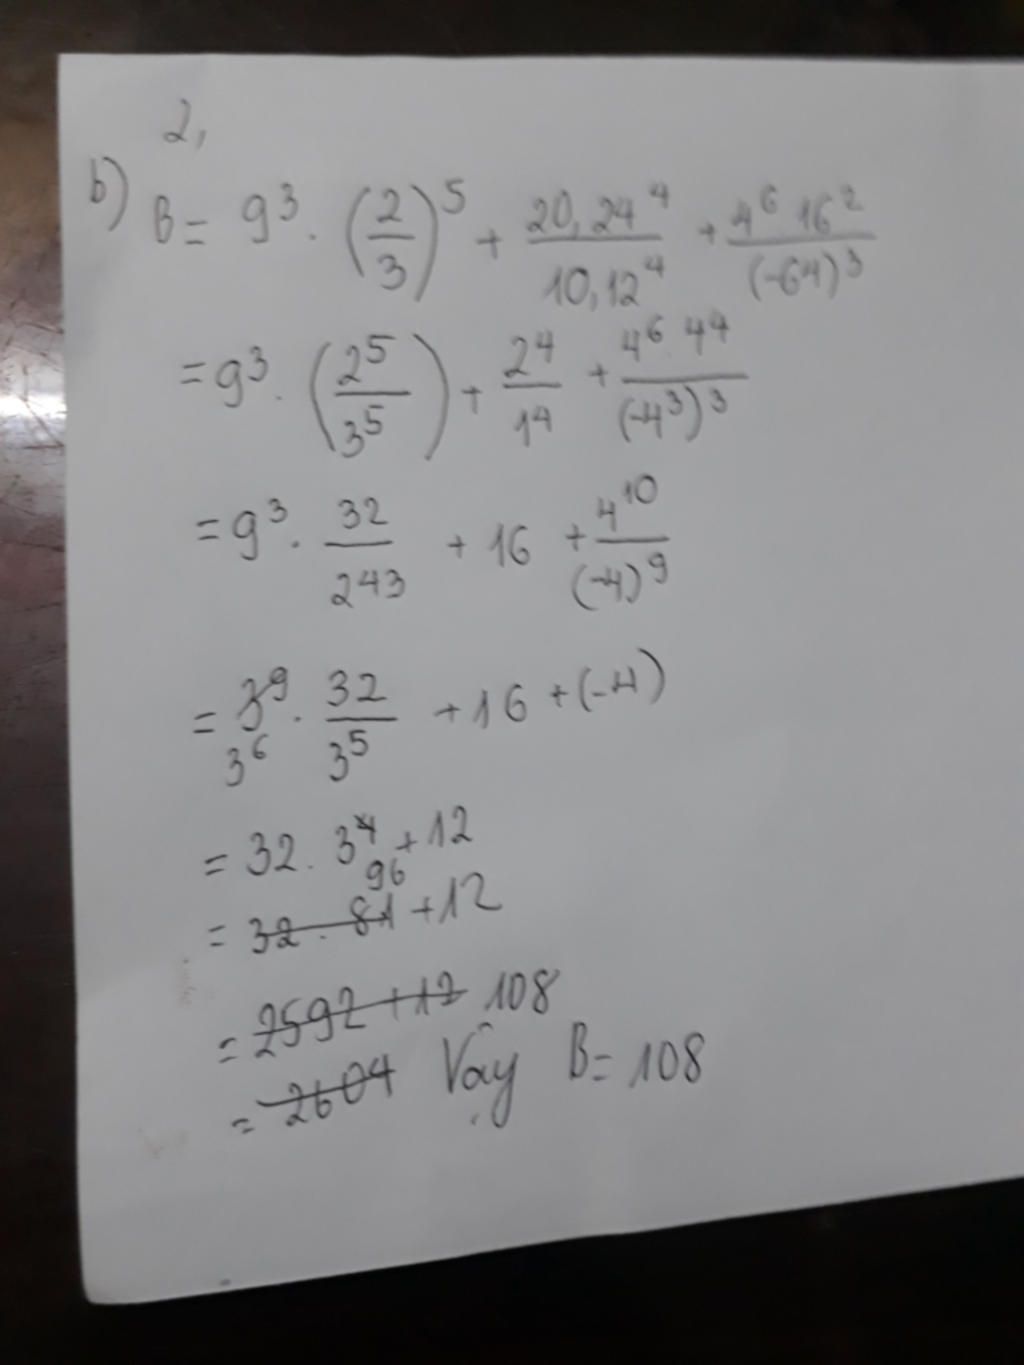 2,
b) B = 9³ . (2/3)⁵ + 20,24⁴/10,12⁴ + 4⁶ 16²/(-64)³
= 9³ . (2⁵/3⁵) + 2⁴/1⁴ + 4⁶ 4⁴/(-4³)³
= 9³ . 32/243 + 16 + 4¹⁰/(-4)⁹
= 3⁹ . 32/3⁵ + 16 + (-4)
3⁶
= 32 . 3⁴ + 12
96
= 32 . 81 + 12
= 2592 + 12 108
= 2604 Vậy B = 108